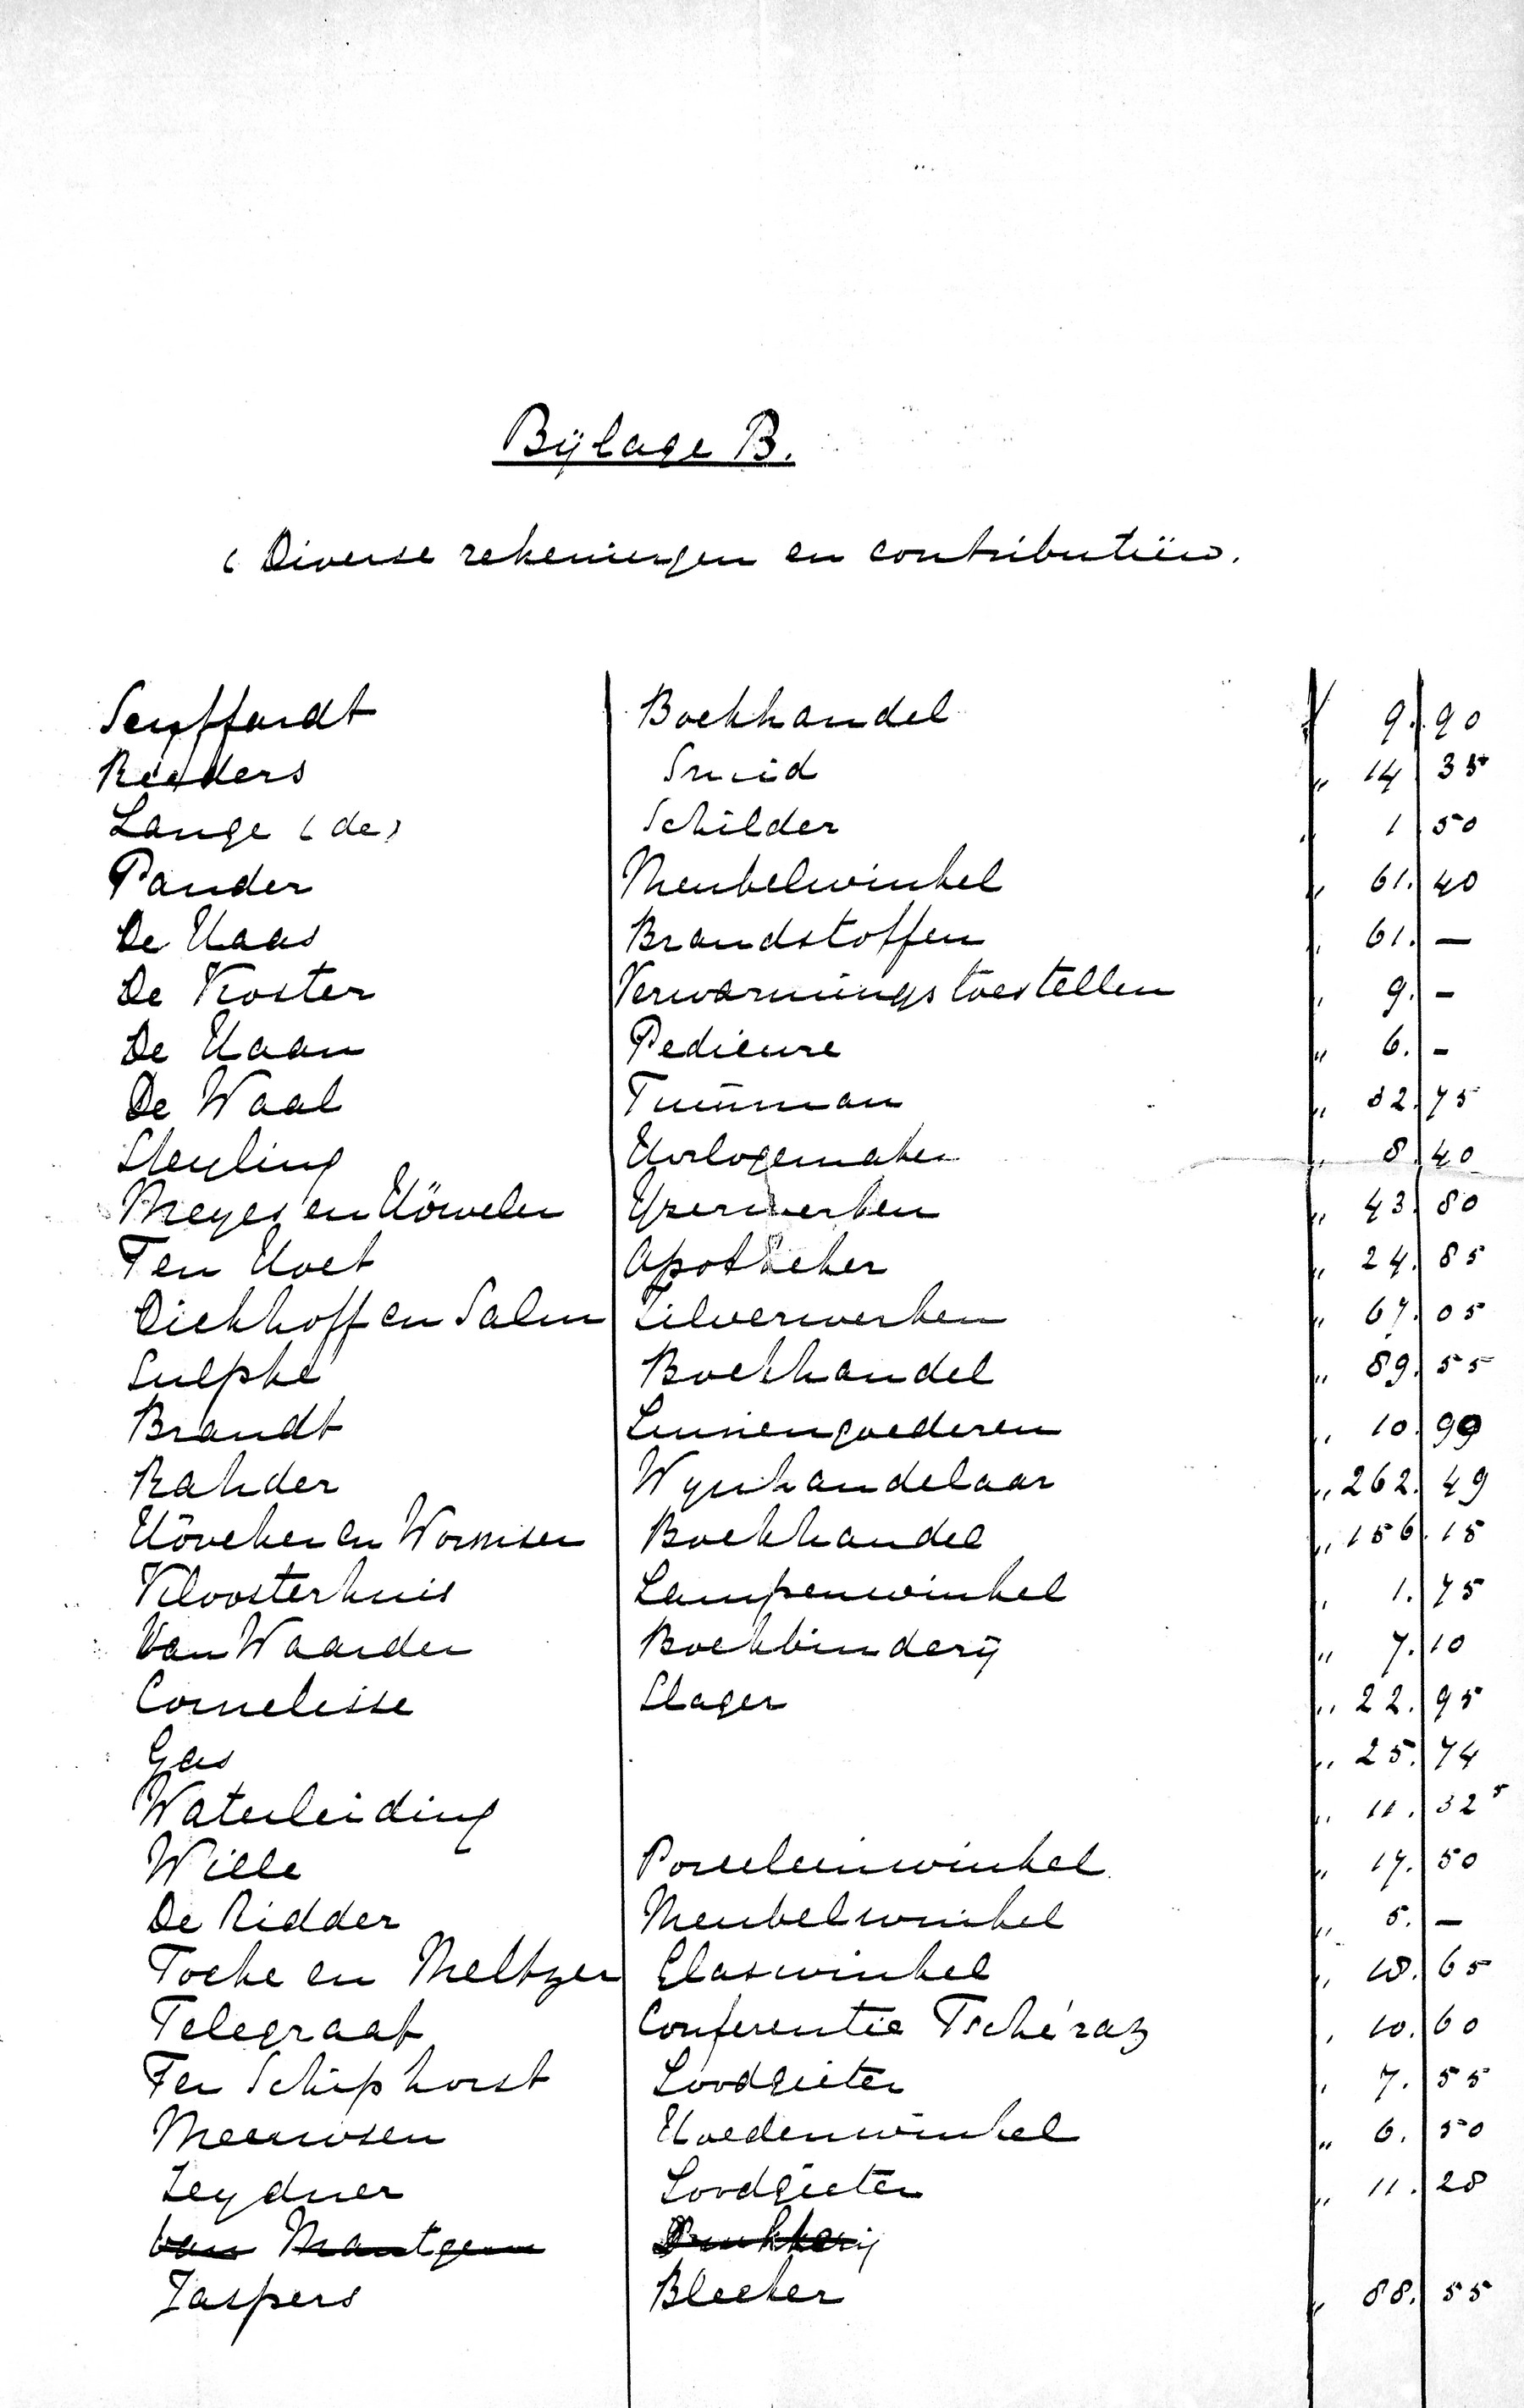 Bÿlage B.
( Diverse rekeningen en contributiën.
Seyffardt Boekhandel f 9.90
Reeders Smid „ 14 35
Lange (de) Schilder „ 1 50
Pander Meubelwinkel „ 61.40
De Haas Brandstoffen „ 61. —
De Koster Verwarmingstoestellen „ 9. —
De Haan Pedicure „ 6. —
De Waal Tuinman „ 82.75
Steyling Horlogemaker „ 8.40
Meyes en Höweler Yzerwerken „ 43.80
Ten Hoet Apotheker „ 24.85
Diekhoff en Salm Zilverwerken „ 67.05
Sulpke Boekhandel „ 89.55
Brandt Linnengoederen „ 10.99
Rahder Wynhandelaar „ 262.49
Höveker en Wormser Boekhandel „ 156.15
Kloosterhuis Lampenwinkel „ 1.75
Van Waarden Boekbinderÿ „ 7.10
Cornelisse Slager „ 22.95
Gas „ 25.74
Waterleiding „ 11.32⁵
Wille Porceleinwinkel „ 17.50
De Ridder Meubelwinkel „ 5. —
Focke en Meltzer Glaswinkel „ 18.65
Telegraaf Conferentie Tschéraz „ 10.60
Ter Schiphorst Loodgieter „ 7.55
Meeuwsen Hoedenwinkel „ 6.50
Zeydner Loodgieter „ 11.28
van Mantgem Drukkerij
Jaspers Bleeker „ 88.55